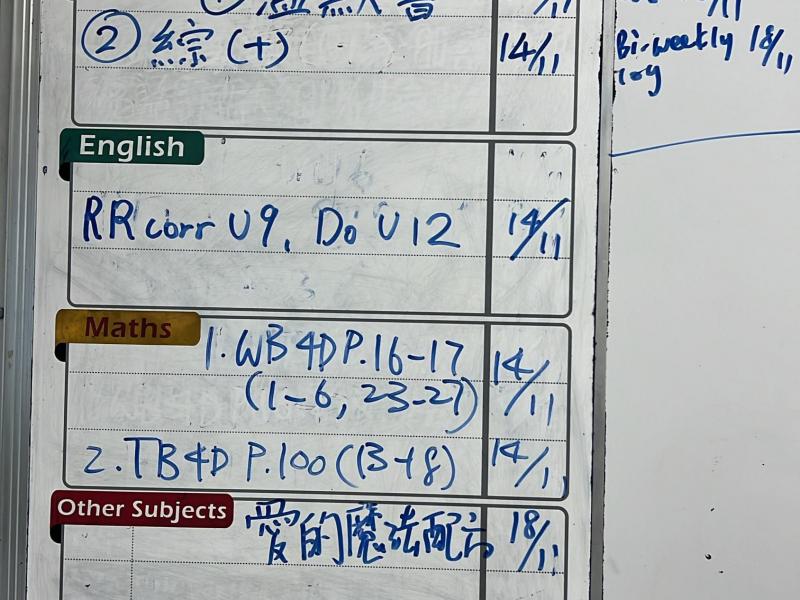 ② 綜(十) 14/11
Bi-weekly 18/11
log
English
RR corr U9, Do U12 14/11
Maths
1. WB4D P.16-17 14/11
(1-6, 23-27)
2. TB4D P.100 (13-18) 14/11
Other Subjects
愛的魔法配方 18/11